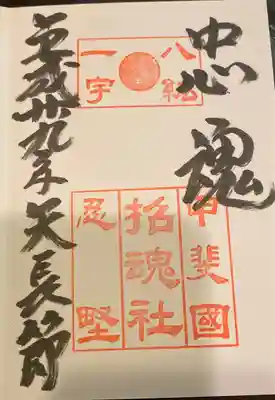 忠魂
八紘
一宇
甲斐國
招魂社
忍野
平成廿九年天長節